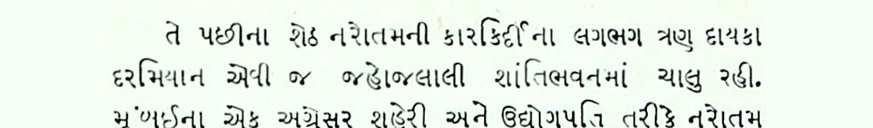 તે પછીના શેઠ નરોતમની કારકિર્દીના લગભગ ત્રણ દાયકા
દરમિયાન એવી જ જહોજલાલી શાંતિભવનમાં ચાલુ રહી.
મુંબઈના એક અગ્રેસર શહેરી અને ઉદ્યોગપતિ તરીકે નરોતમ